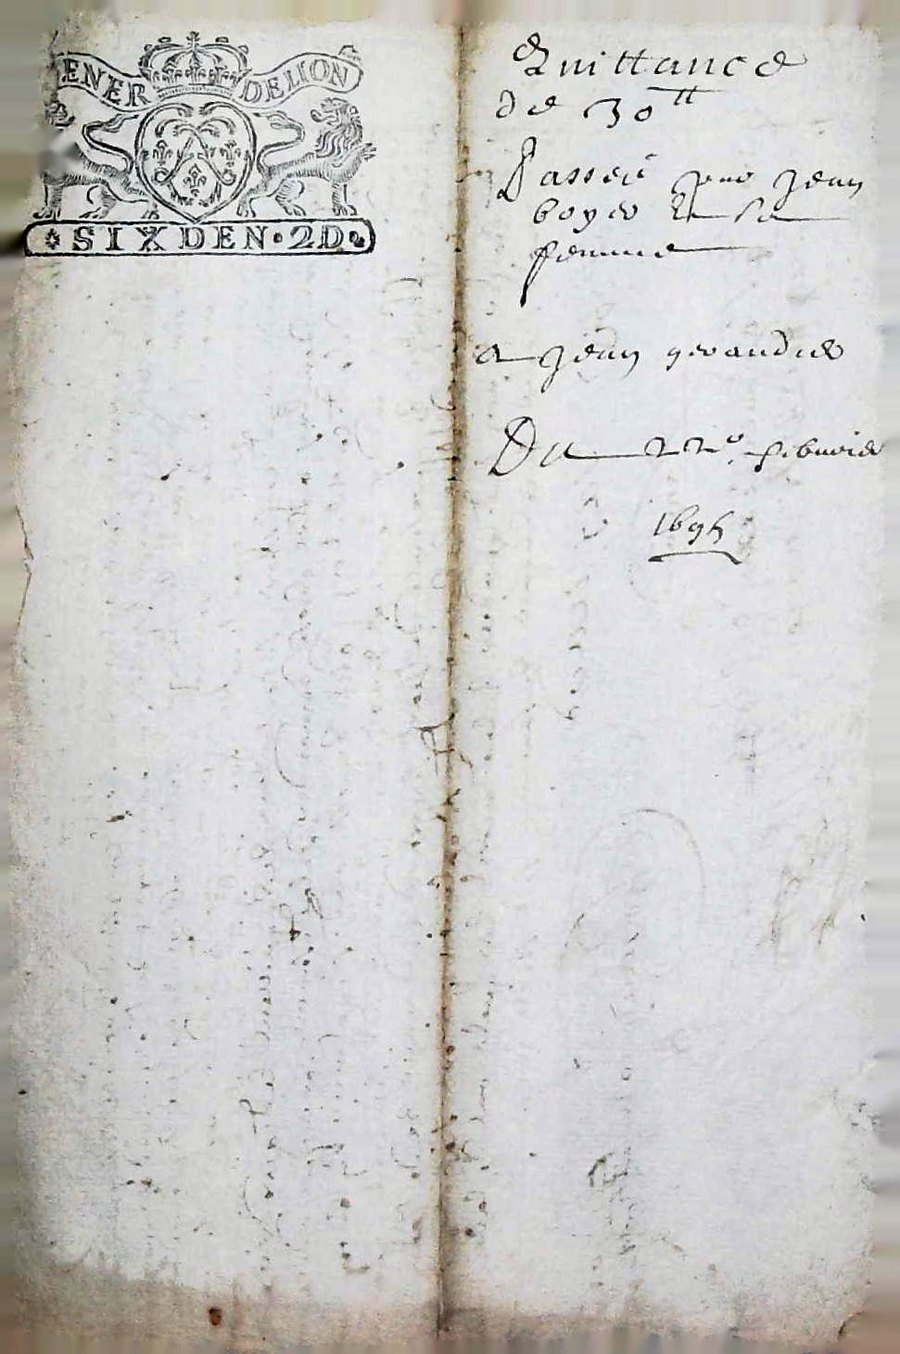 GENER DEMON
SIX DEN 2D
Quittance
de 30 tt
Passée par Jean
boyer Et sa
femme
a Jean gerandier
Du 22e febvrier
1695